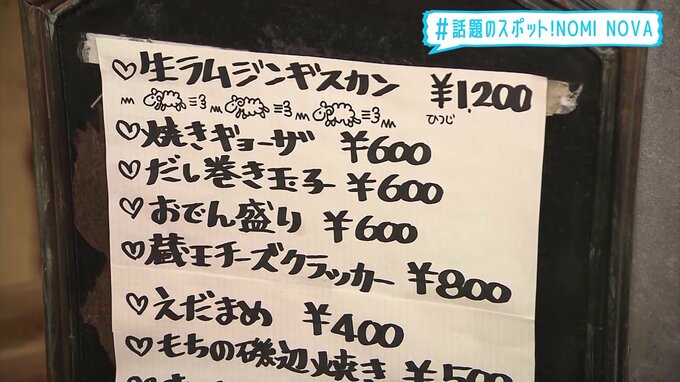 #話題のスポット!NOMI NOVA
♡生ラムジンギスカン ¥1,200
ひつじ
♡焼きギョーザ ¥600
♡だし巻き玉子 ¥600
♡おでん盛り ¥600
♡蔵王チーズクラッカー ¥800
♡えだまめ ¥400
♡もちの磯辺焼き ¥500